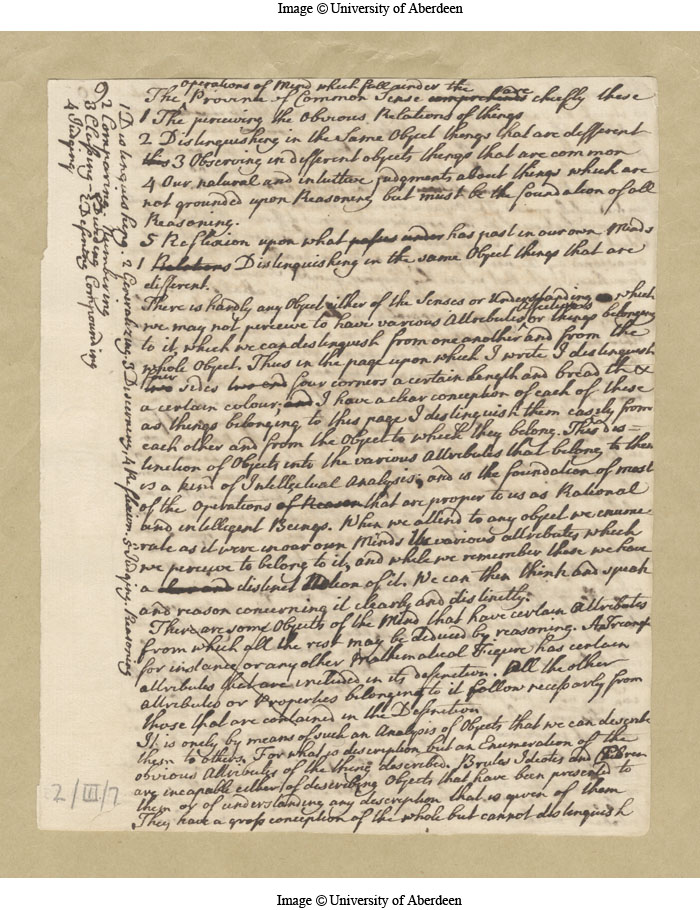 Image © University of Aberdeen
operations of Mind which fall under the
The Province of Common Sense comprehends are chiefly these
1 The perceiving the Obvious Relations of things
2 Distinguishing in the Same Object things that are different
this 3 Observing in different objects things that are common
4 Our natural and intuitive judgments about things which are
not grounded upon Reasoning but must be the foundation of all
Reasoning.
5 Reflexion upon what passes under has past in our own Minds
1 Relations Distinguishing in the same Object things that are
different.
There is hardly any Object either of the Senses or Understanding which
we may not perceive to have various Attributes or things belonging
to it, which we can distinguish from one another and from the
whole Object. Thus in the page upon which I write I distinguish
four
two sides two and four corners a certain length and breadth &
a certain colour, and I have a clear conception of each of these
as things belonging to this page I distinguish them easily from
each other and from the Object to which they belong. This dis=
tinction of Objects into the various Attributes that belong to them
is a kind of Intellectual Analysis, and is the foundation of most
of the Operations of Reason that are proper to us as Rational
and intelligent Beings. When we attend to any object we enume
rate as it were in our own Minds the various attributes which
we perceive to belong to it, and while we remember these we have
a clear and distinct Notion of it. We can then think and speak
and reason concerning it clearly and distinctly.
There are some Objects of the Mind that have certain attributes
from which all the rest may be deduced by reasoning. A Triangle
for instance or any other Mathematical Figure has certain
attributes that are included in its definition. All the other
attributes or Properties belonging to it follow necessarly from
those that are contained in the Definition
It is onely by means of such an Analysis of Objects that we can describe
them to others. For what is description but an Enumeration of the
obvious Attributes of the thing described. Brutes Ideots and
are incapable either of describing Objects that have been presented to
them or of understanding any description that is given of them
They have a gross conception of the whole but cannot distinguish
1 Distinguishing. 2 Generalizing. 3 Discerning, 4 Reflexion 5 Judging. Reasoning
2 Comparing Numbering
3 Classing - Dividing Compounding
4 Judging
2/III/7
Image © University of Aberdeen